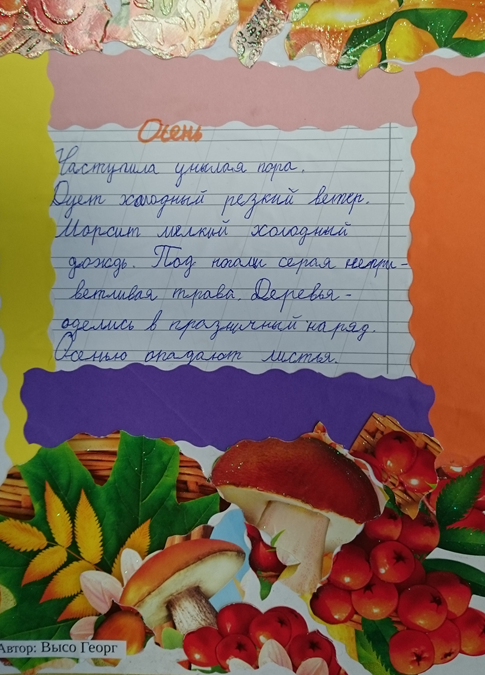 Осень
Наступила унылая пора.
Дует холодный резкий ветер.
Морсит мелкий холодный
дождь. Под ногами серая непри-
ветливая трава. Деревья -
оделись в празничный наряд.
Осенью опадают листья.
Автор: Высо Георг